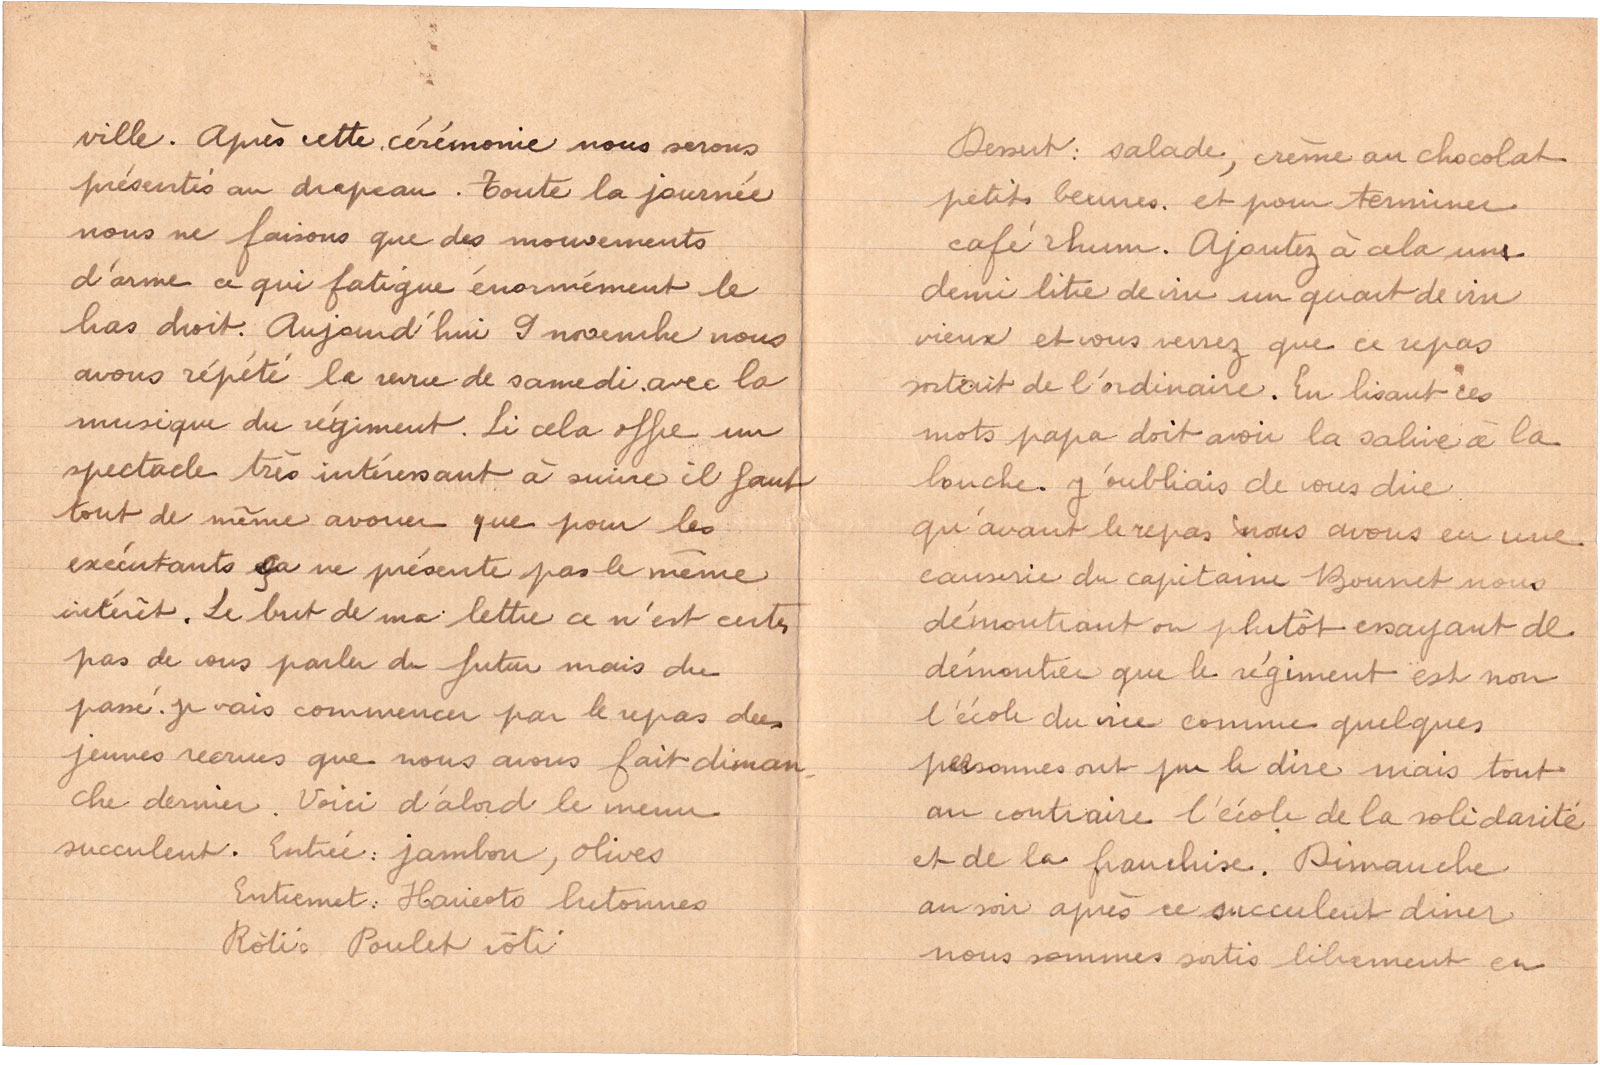 ville. Après cette cérémonie nous serons
présentés au drapeau. Toute la journée
nous ne faisons que des mouvements
d'arme ce qui fatigue énormément le
bras droit. Aujourd'hui 9 novembre nous
avons répété la revue de samedi avec la
musique du régiment. Si cela offre un
spectacle très intéressant à suivre il faut
tout de même avouer que pour les
exécutants ça ne présente pas le même
intérêt. Le but de ma lettre ce n'est certes
pas de vous parler du futur mais du
passé. je vais commencer par le repas des
jeunes recrues que nous avons fait diman-
che dernier. Voici d'abord le menu
succulent. Entrée : jambon, olives
Entremet : Haricots bretonnes
Rôti : Poulet rôti
Dessert : salade, crème au chocolat
petits beurres. et pour terminer
café rhum. Ajoutez à cela un
demi litre de vin un quart de vin
vieux et vous verrez que ce repas
sortait de l'ordinaire. En lisant ces
mots papa doit avoir la salive à la
bouche. J'oubliais de vous dire
qu'avant le repas nous avons eu une
causerie du capitaine Bounet nous
démontrant ou plutôt essayant de
démontrer que le régiment est non
l'école du vice comme quelques
personnes ont pu le dire mais tout
au contraire l'école de la solidarité
et de la franchise. Dimanche
au soir après ce succulent diner
nous sommes sortis librement en